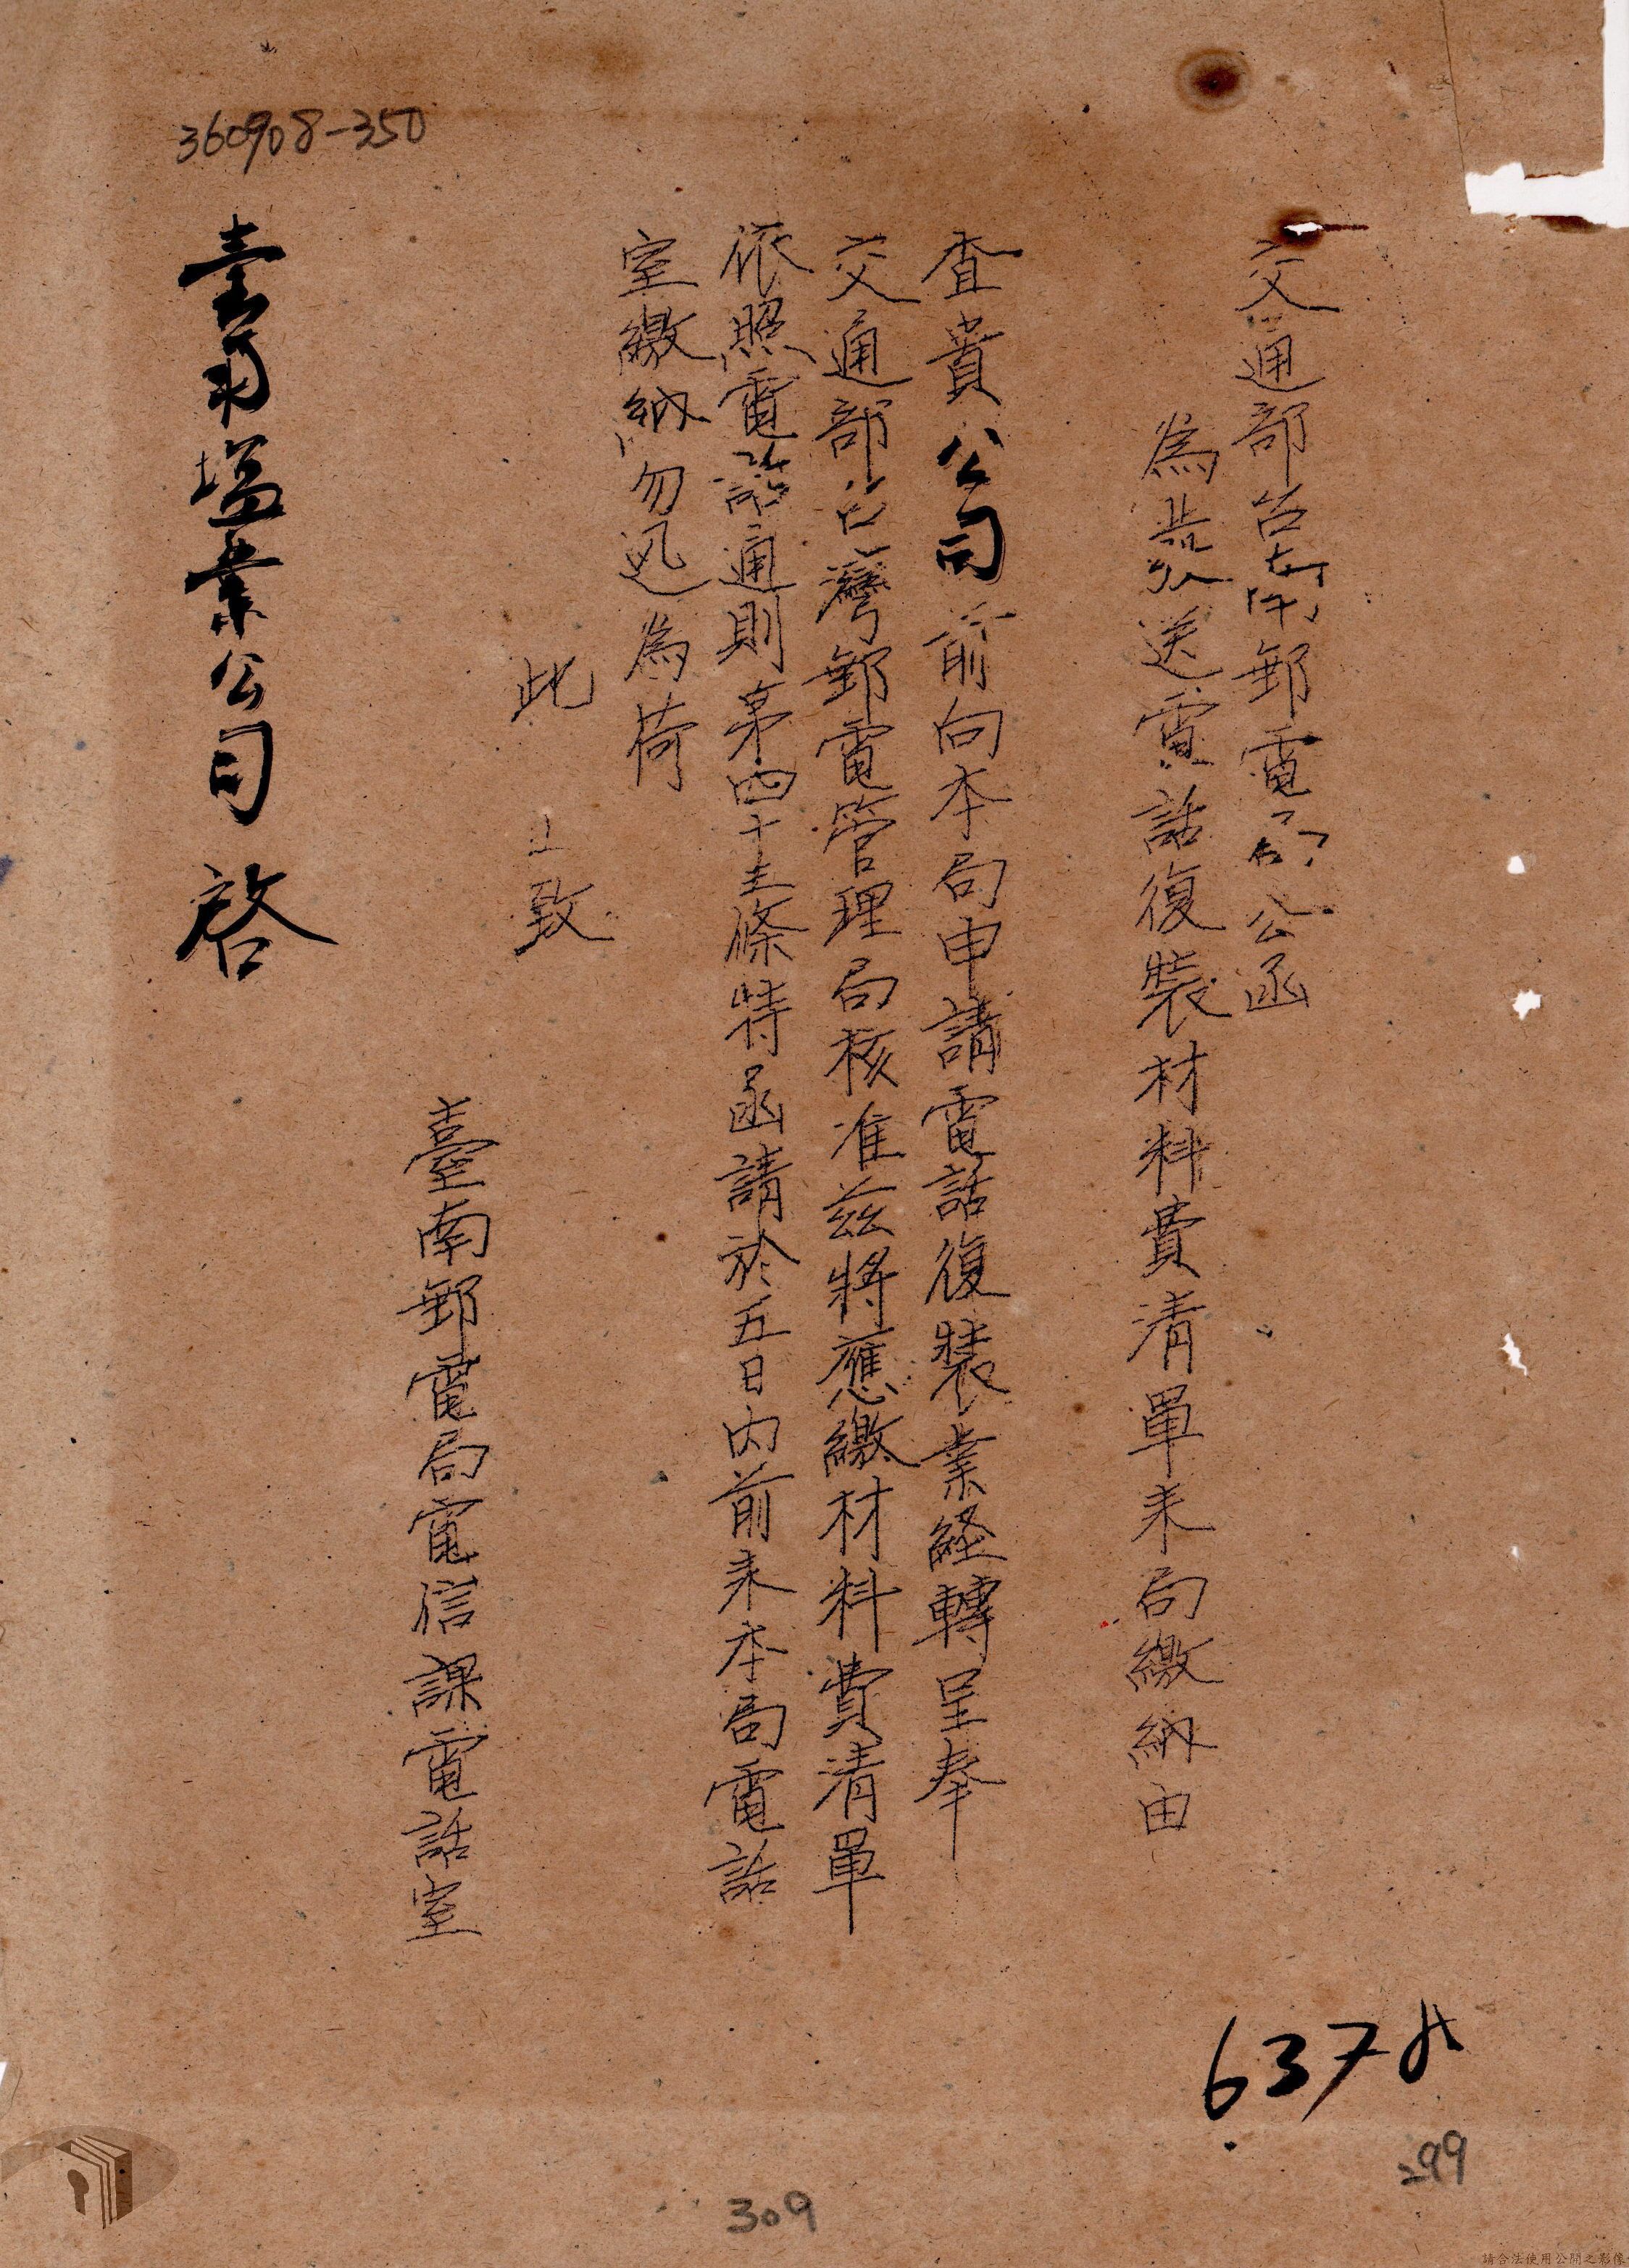 交通部台南郵電局公函
為發送電話復裝材料費清單来局繳納由
查貴公司前向本局申請電話復裝業経轉呈奉
交通部台灣郵電管理局核准茲將應繳材料費清單
依照電話通則第四十主條特函請於五日内前来本局電話
室繳納勿迅為荷
此 致
臺南郵電局電信課電話室
臺南塩業公司 啓
360908-350
637
299
309
請合法使用公開之影像